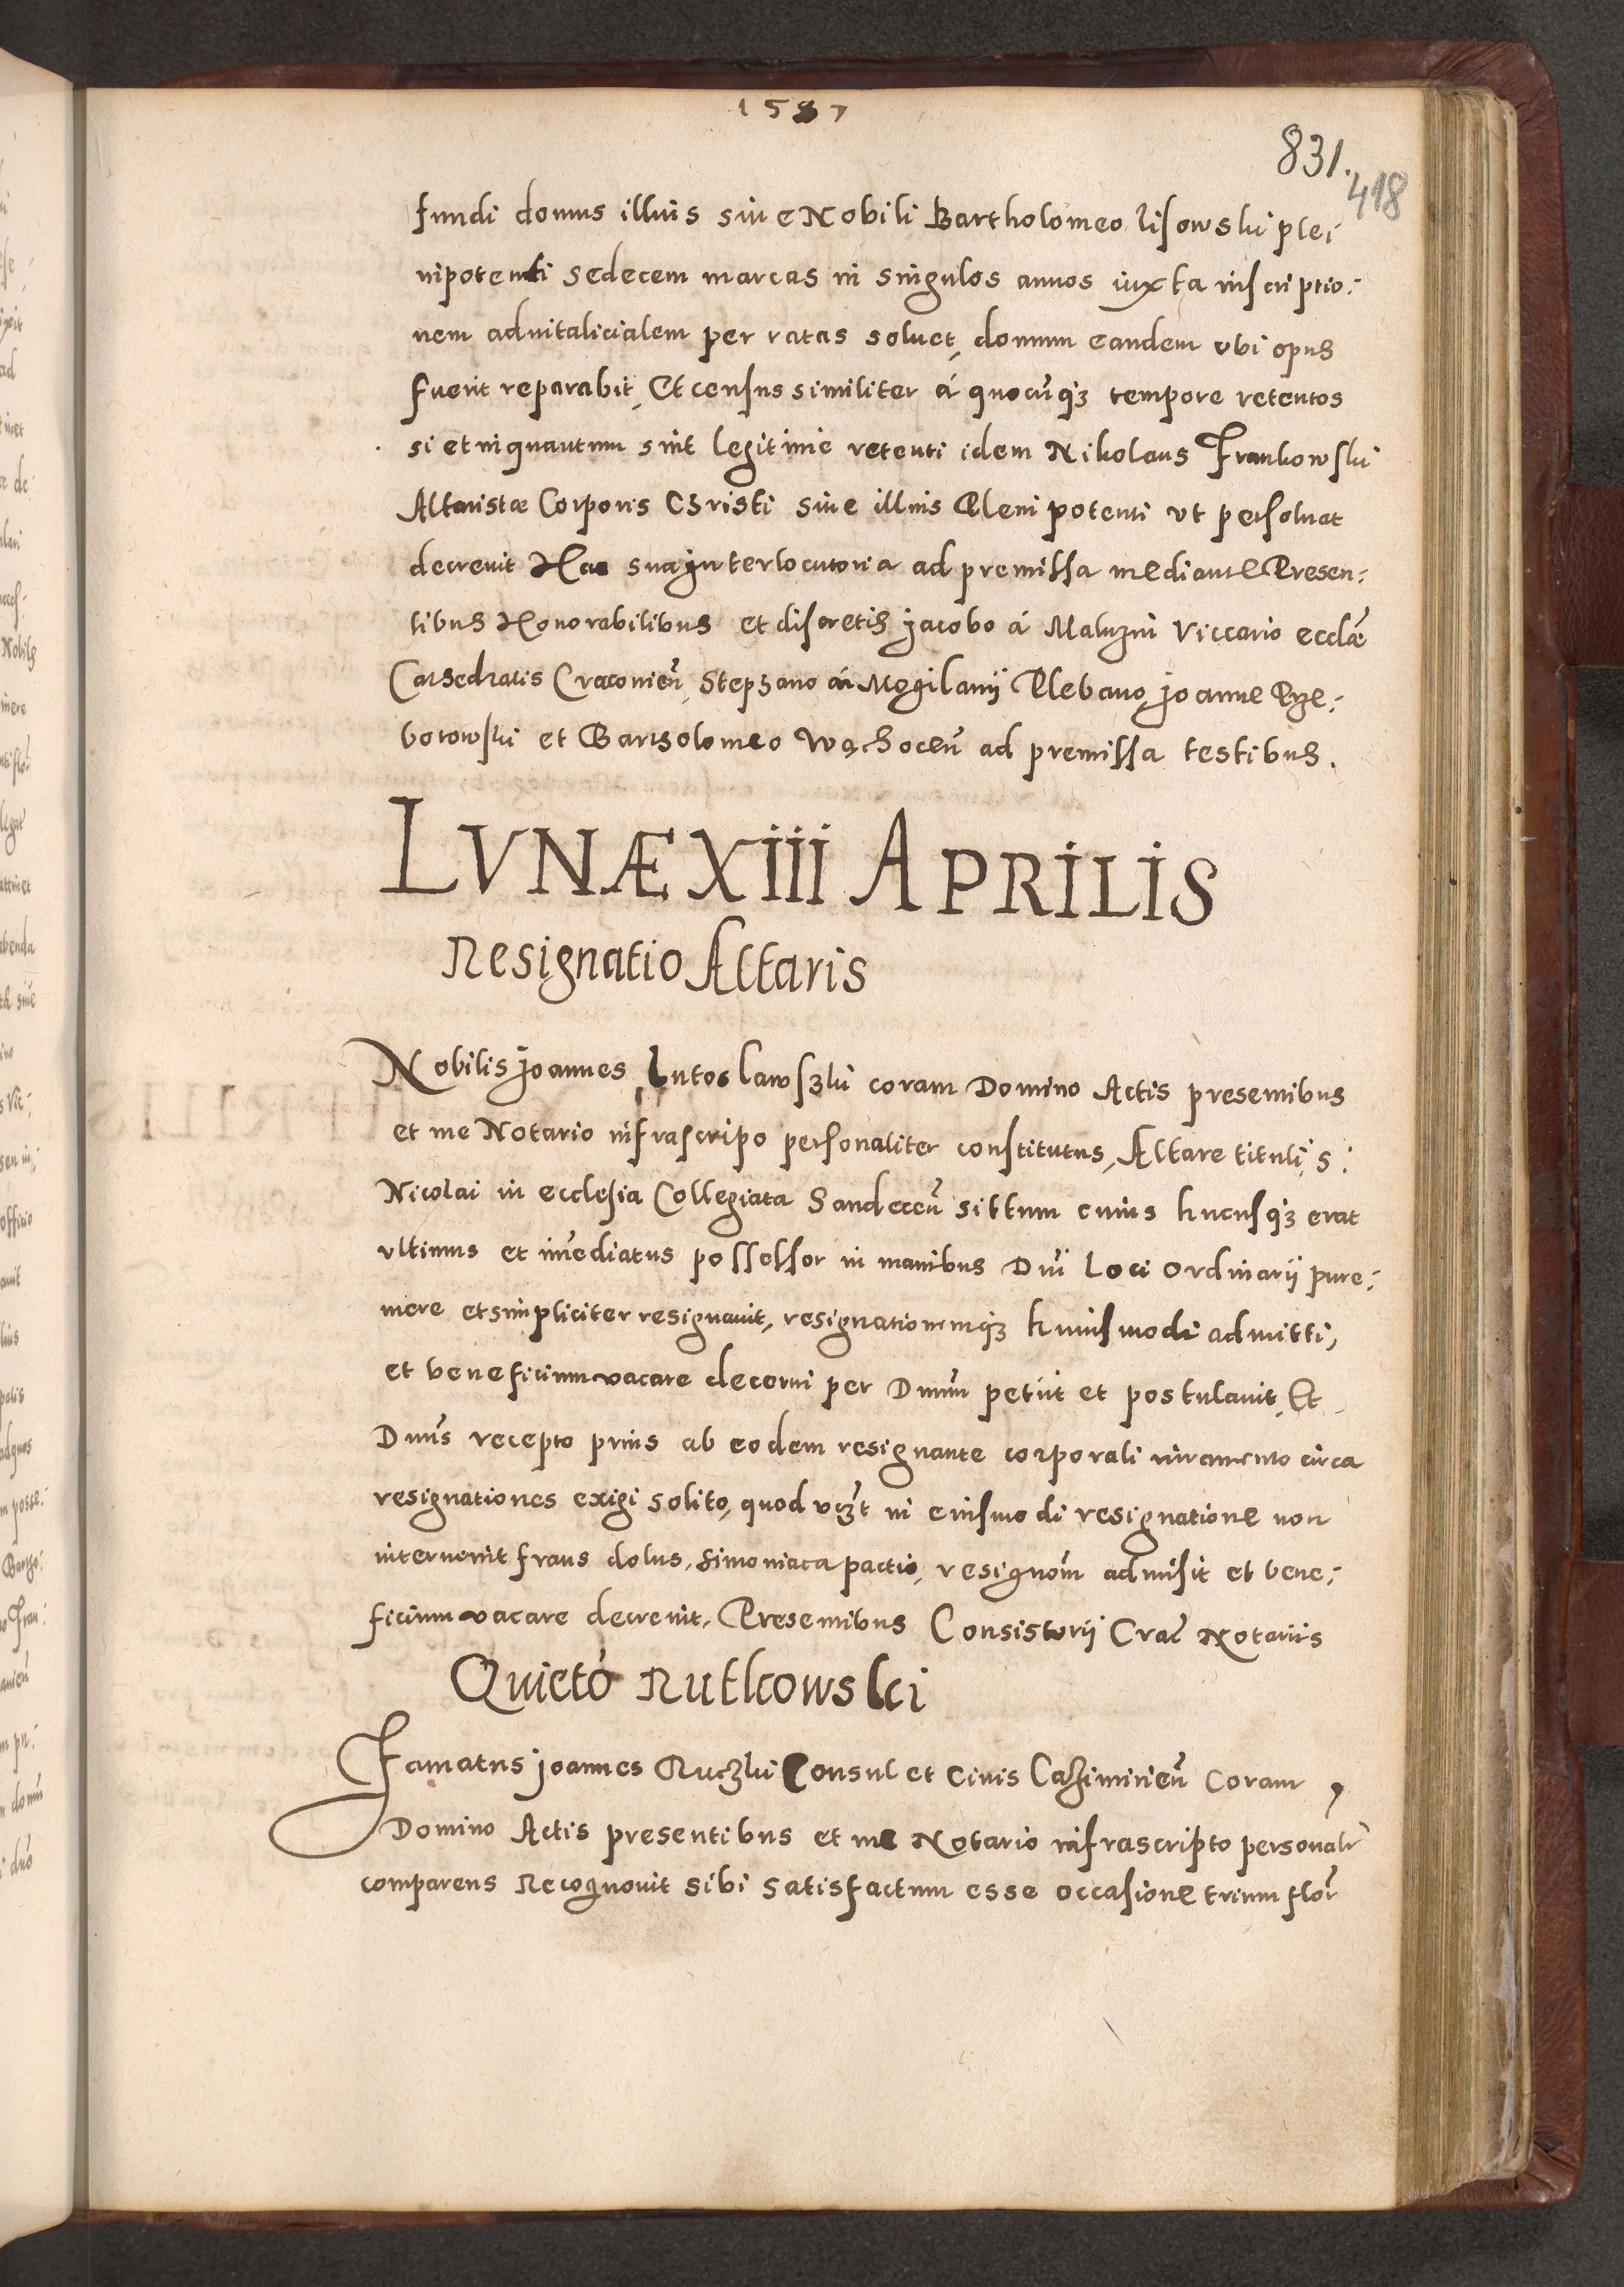 1587
831.
418
fundi domus illius siue Nobili Bartholomeo Lisowski ple:
nipotenti sedecem marcas in singulos annos iuxta inscriptio:
nem aduitalicialem per ratas soluet, domum eandem vbi opus
fuerit reparabit, Et census similiter á quocunq3 tempore retentos
si et inquantum sint legitime retenti idem Nikolaus Frankowski
Altaristæ Corporis Christi siue illius Plenipotenti vt persoluat
decreuit Hac sua interlocutoria ad premissa mediante Presen:
tibus Honorabilibus et discretis Jacobo á Maluzin Viccario eccłæ
Cathedralis Cracouień, Stephano á Mogilanÿ Plebano, Joanne Prze:
borowski et Bartholomeo Wąchoceń ad premissa testibus.
LVNÆ XIII APRILIS
Resignatio Altaris
Nobilis Joannes Lutoslawszki coram Domino Actis presentibus
et me Notario infrascripo personaliter constitutus, Altare tituli S:
Nicolai in ecclesia Collegiata Sandeceń sittum cuius hucusq3 erat
vltimus et im̃ediatus possessor in manibus Dñi Loci Ordinarÿ pure:
mere et simpliciter resignauit, resignationemq3 huiusmodi admitti,
et beneficium vacare decerni per Dnum̃ petiit et postulauit, Et
Dnus̃ recepto prius ab eodem resignante corporali iuramento circa
resignationes exigi solito, quod vz̃t in eiusmodi resignatione non
interuenit fraus dolus, simoniaca pactio, resignom̃ admisit et bene:
ficium vacare decreuit, Presentibus Consistorÿ Crac̃ Notariis
Quieto Rutkowski
Famatus Joannes Ruczki Consul et Ciuis Cazimirień Coram
Domino Actis presentibus et me Notario infrascripto personalr̃
comparens Recognouit sibi satisfactum esse occasione trium flor̃